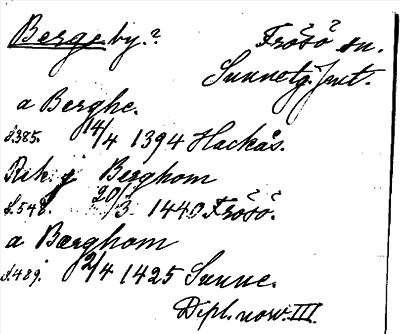 Berge by.? Frösö? sn.
Sunne tg. Jmt.
a Berghe.
S.385. 14/4 1394 Hackås.
Rik j Berghom
S.548. 20/3 1440 Frösö.
a Bærghom
S.489. 2/4 1425 Sunne.
Dipl. norv. III.